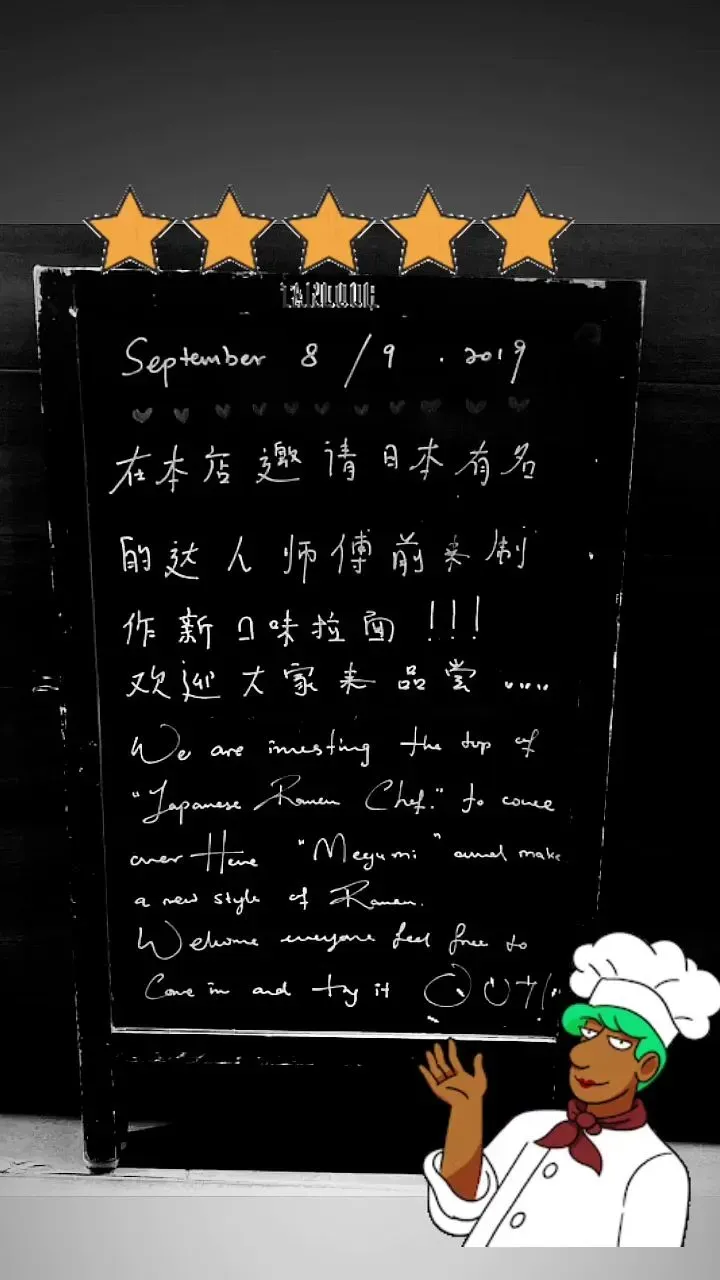 September 8 / 9 . 2019
在本店邀请日本有名
的达人师傅前来制
作新口味拉面 !!!
欢迎大家来品尝 .....
We are investing the top of
"Japanese Ramen Chef." to come
over Here "Megumi" and make
a new style of Ramen.
Welcome everyone feel free to
Come in and try it